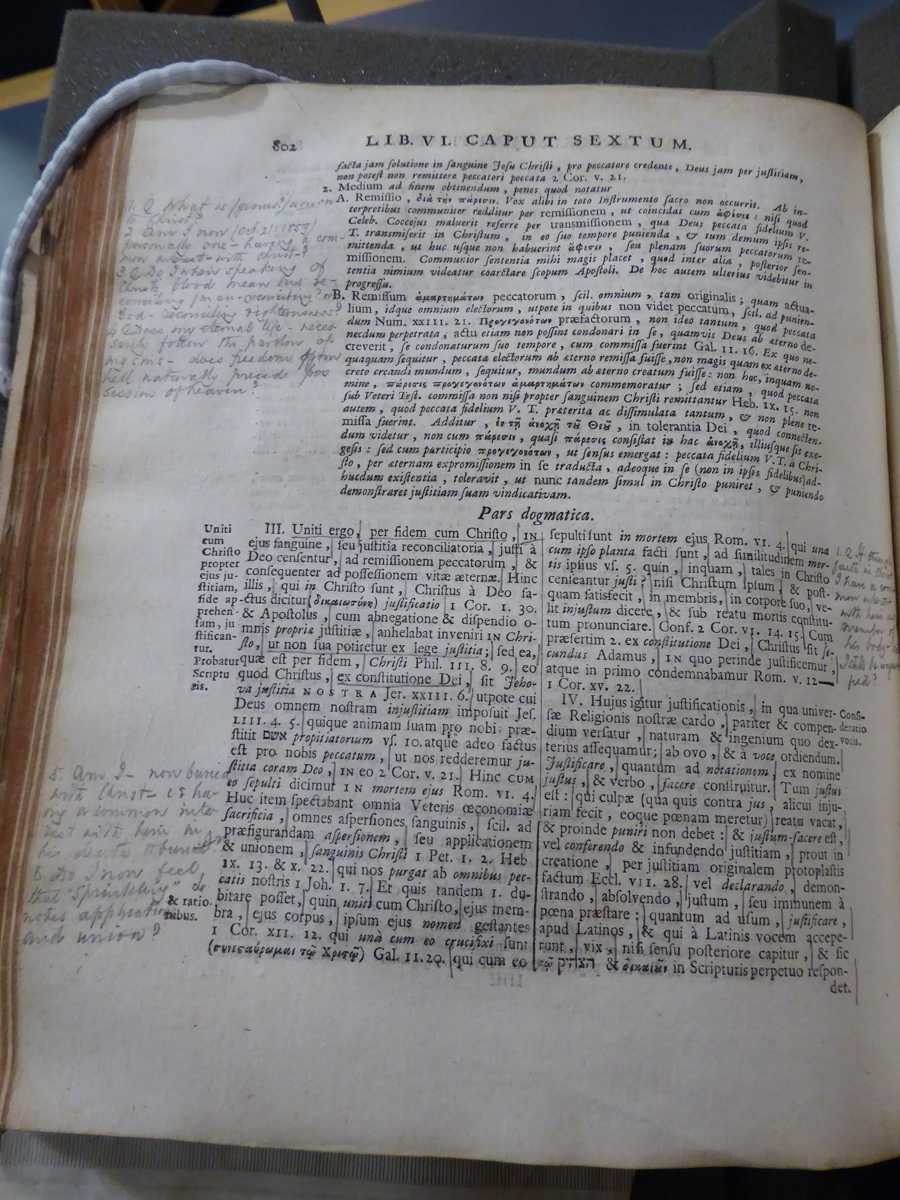 802 LIB. VI. CAPUT SEXTUM.
facta jam solutione in sanguine Jesu Christi, pro peccatore credente, Deus jam per justitiam,
non potest non remittere peccatori peccata 2 Cor. v. 21.
2. Medium ad finem obtinendum, penes quod notatur
A. Remissio, διὰ τὴν πάρεσιν. Vox alibi in toto Instrumento sacro non occurrit. Ab in-
terpretibus communiter redditur per remissionem, ut coincidat cum ἀφέσει: nisi quod
Celeb. Coccejus maluerit referre per transmissionem, qua Deus peccata fidelium V.
T. transmiserit in Christum, in eo suo tempore punienda, & tum demum ipsis re-
mittenda, ut huc usque non habuerint ἄφεσιν, seu plenam suorum peccatorum re-
missionem. Communior sententia mihi magis placet, quod inter alia, posterior sen-
tentia nimium videatur coarctare scopum Apostoli. De hoc autem ulterius videbitur in
progressu.
B. Remissum ἁμαρτημάτων peccatorum, scil. omnium, tam originalis; quam actua-
lium, idque omnium electorum, utpote in quibus non videt peccatum, scil. ad punien-
dum Num. XXIII. 21. Προγεγονότων præfactorum, non ideo tantum, quod peccata
necdum perpetrata, actu etiam non possint condonari in se, quamvis Deus ab æterno de-
creverit, se condonaturum suo tempore, cum commissa fuerint Gal. II. 16. Ex quo ne-
quaquam sequitur, peccata electorum ab æterno remissa fuisse, non magis quam ex æterno de-
creto creandi mundum, sequitur, mundum ab æterno creatum fuisse: non hoc, inquam no-
mine, πάρεσις προγεγονότων ἁμαρτημάτων commemoratur; sed etiam, quod peccata
sub Veteri Test. commissa non nisi propter sanguinem Christi remittantur Heb. IX. 15. non
autem, quod peccata fidelium V. T. præterita ac dissimulata tantum, & non plene re-
missa fuerint. Additur, ἐν τῇ ἀνοχῇ τοῦ Θεοῦ, in tolerantia Dei, quod connecten-
dum videtur, non cum πάρεσιν, quasi πάρεσις consistat in hac ἀνοχῇ, illiusque sit exe-
gesis: sed cum participio προγεγονότων, ut sensus emergat: peccata fidelium V. T. à Chri-
sto, per æternam expromissionem in se traducta, adeoque in se (non in ipsis fidelibus) ad-
hucdum existentia, toleravit, ut nunc tandem simul in Christo puniret, & puniendo
demonstraret justitiam suam vindicativam.
Pars dogmatica.
Uniti
cum
Christo
propter
ejus ju-
stitiam,
fide ap-
prehen-
sam, ju
stifican-
tur.
Probatur
Scriptu
ris.
& ratio.
nibus.
III. Uniti ergo, per fidem cum Christo, IN
ejus sanguine, seu justitia reconciliatoria, justi à
Deo censentur, ad remissionem peccatorum, &
consequenter ad possessionem vitæ æternæ. Hinc
illis, qui in Christo sunt, Christus à Deo fa-
ctus dicitur (δικαιωσύνη) justificatio 1 Cor. 1. 30.
& Apostolus, cum abnegatione & dispendio o-
mnis propriæ justitiæ, anhelabat inveniri IN Chri-
sto, ut non sua potiretur ex lege justitia; sed ea,
quæ est per fidem, Christi Phil. III. 8. 9. eo
quod Christus, ex constitutione Dei, sit Jeho-
va justitia NOSTRA Jer. XXIII. 6. utpote cui
Deus omnem nostram injustitiam imposuit Jes.
LIII. 4. 5. quique animam suam pro nobis præ-
stitit אשם propitiatorium vs. 10. atque adeo factus
est pro nobis peccatum, ut nos redderemur ju-
stitia coram Deo, IN eo 2 Cor. v. 21. Hinc CUM
eo sepulti dicimur IN mortem ejus Rom. VI. 4.
Huc item spectabant omnia Veteris œconomiæ
sacrificia, omnes aspersiones sanguinis, scil. ad
præfigurandam aspersionem, seu applicationem
& unionem, sanguinis Christi 1 Pet. 1. 2. Heb
IX. 13. & X. 22. qui nos purgat ab omnibus pec-
catis nostris 1 Joh. 1. 7. Et quis tandem 1. du-
bitare posset, quin uniti cum Christo, ejus mem-
bra, ejus corpus, ipsum ejus nomen gestantes
1 Cor. XII. 12. qui una cum eo crucifixi sunt
(συνεσταύρωμαι τῷ Χριστῷ) Gal. II. 20. qui cum eo
sepulti sunt in mortem ejus Rom. VI. 4. qui una
cum ipso planta facti sunt, ad similitudinem mor-
tis ipsius vs. 5. quin, inquam, tales in Christo
censeantur justi? nisi Christum ipsum, & post-
quam satisfecit, in membris, in corpore suo, ve-
lit injustum dicere, & sub reatu mortis constitu-
tum pronunciare. Conf. 2 Cor. VI. 14. 15. Cum
præsertim 2. ex constitutione Dei, Christus sit se-
cundus Adamus, IN quo perinde justificemur,
atque in primo condemnabamur Rom. v. 12—
1 Cor. XV. 22.
IV. Hujus igitur justificationis, in qua univer-
sæ Religionis nostræ cardo, pariter & compen-
dium versatur, naturam & ingenium quo dex-
terius assequamur; ab ovo, & à voce ordiendum.
Justificare, quantum ad notationem, ex nomine
justus, & verbo, facere construitur. Tum justus
est: qui culpæ (qua quis contra jus, alicui inju-
riam fecit, eoque pœnam meretur) reatu vacat,
& proinde puniri non debet: & justum-facere est,
vel conferendo & infundendo justitiam, prout in
creatione, per justitiam originalem protoplastis
factum Eccl. VII. 28. vel declarando, demon-
strando, absolvendo, justum, seu immunem à
pœna præstare: quantum ad usum, justificare,
apud Latinos, & qui à Latinis vocem accepe-
runt, vix nisi sensu posteriore capitur, & sic
τὸ הצדיק & δικαιοῦν in Scripturis perpetuo respon-
det.
Consi-
deratio
vocis.
2. Am I now (Oct. 21. 1855)
personally one—having a com-
mon interest—with Christ?
3. Q. Do I when speaking of
Christ's blood mean
my sins—does freedom from
hell naturally precede pos-
session of heaven?
5. Am I now buried
with Christ
my a common inte-
rest with him in
his death & burial
6. Do I now feel,
that "Sprinkling" de
notes application
and union?